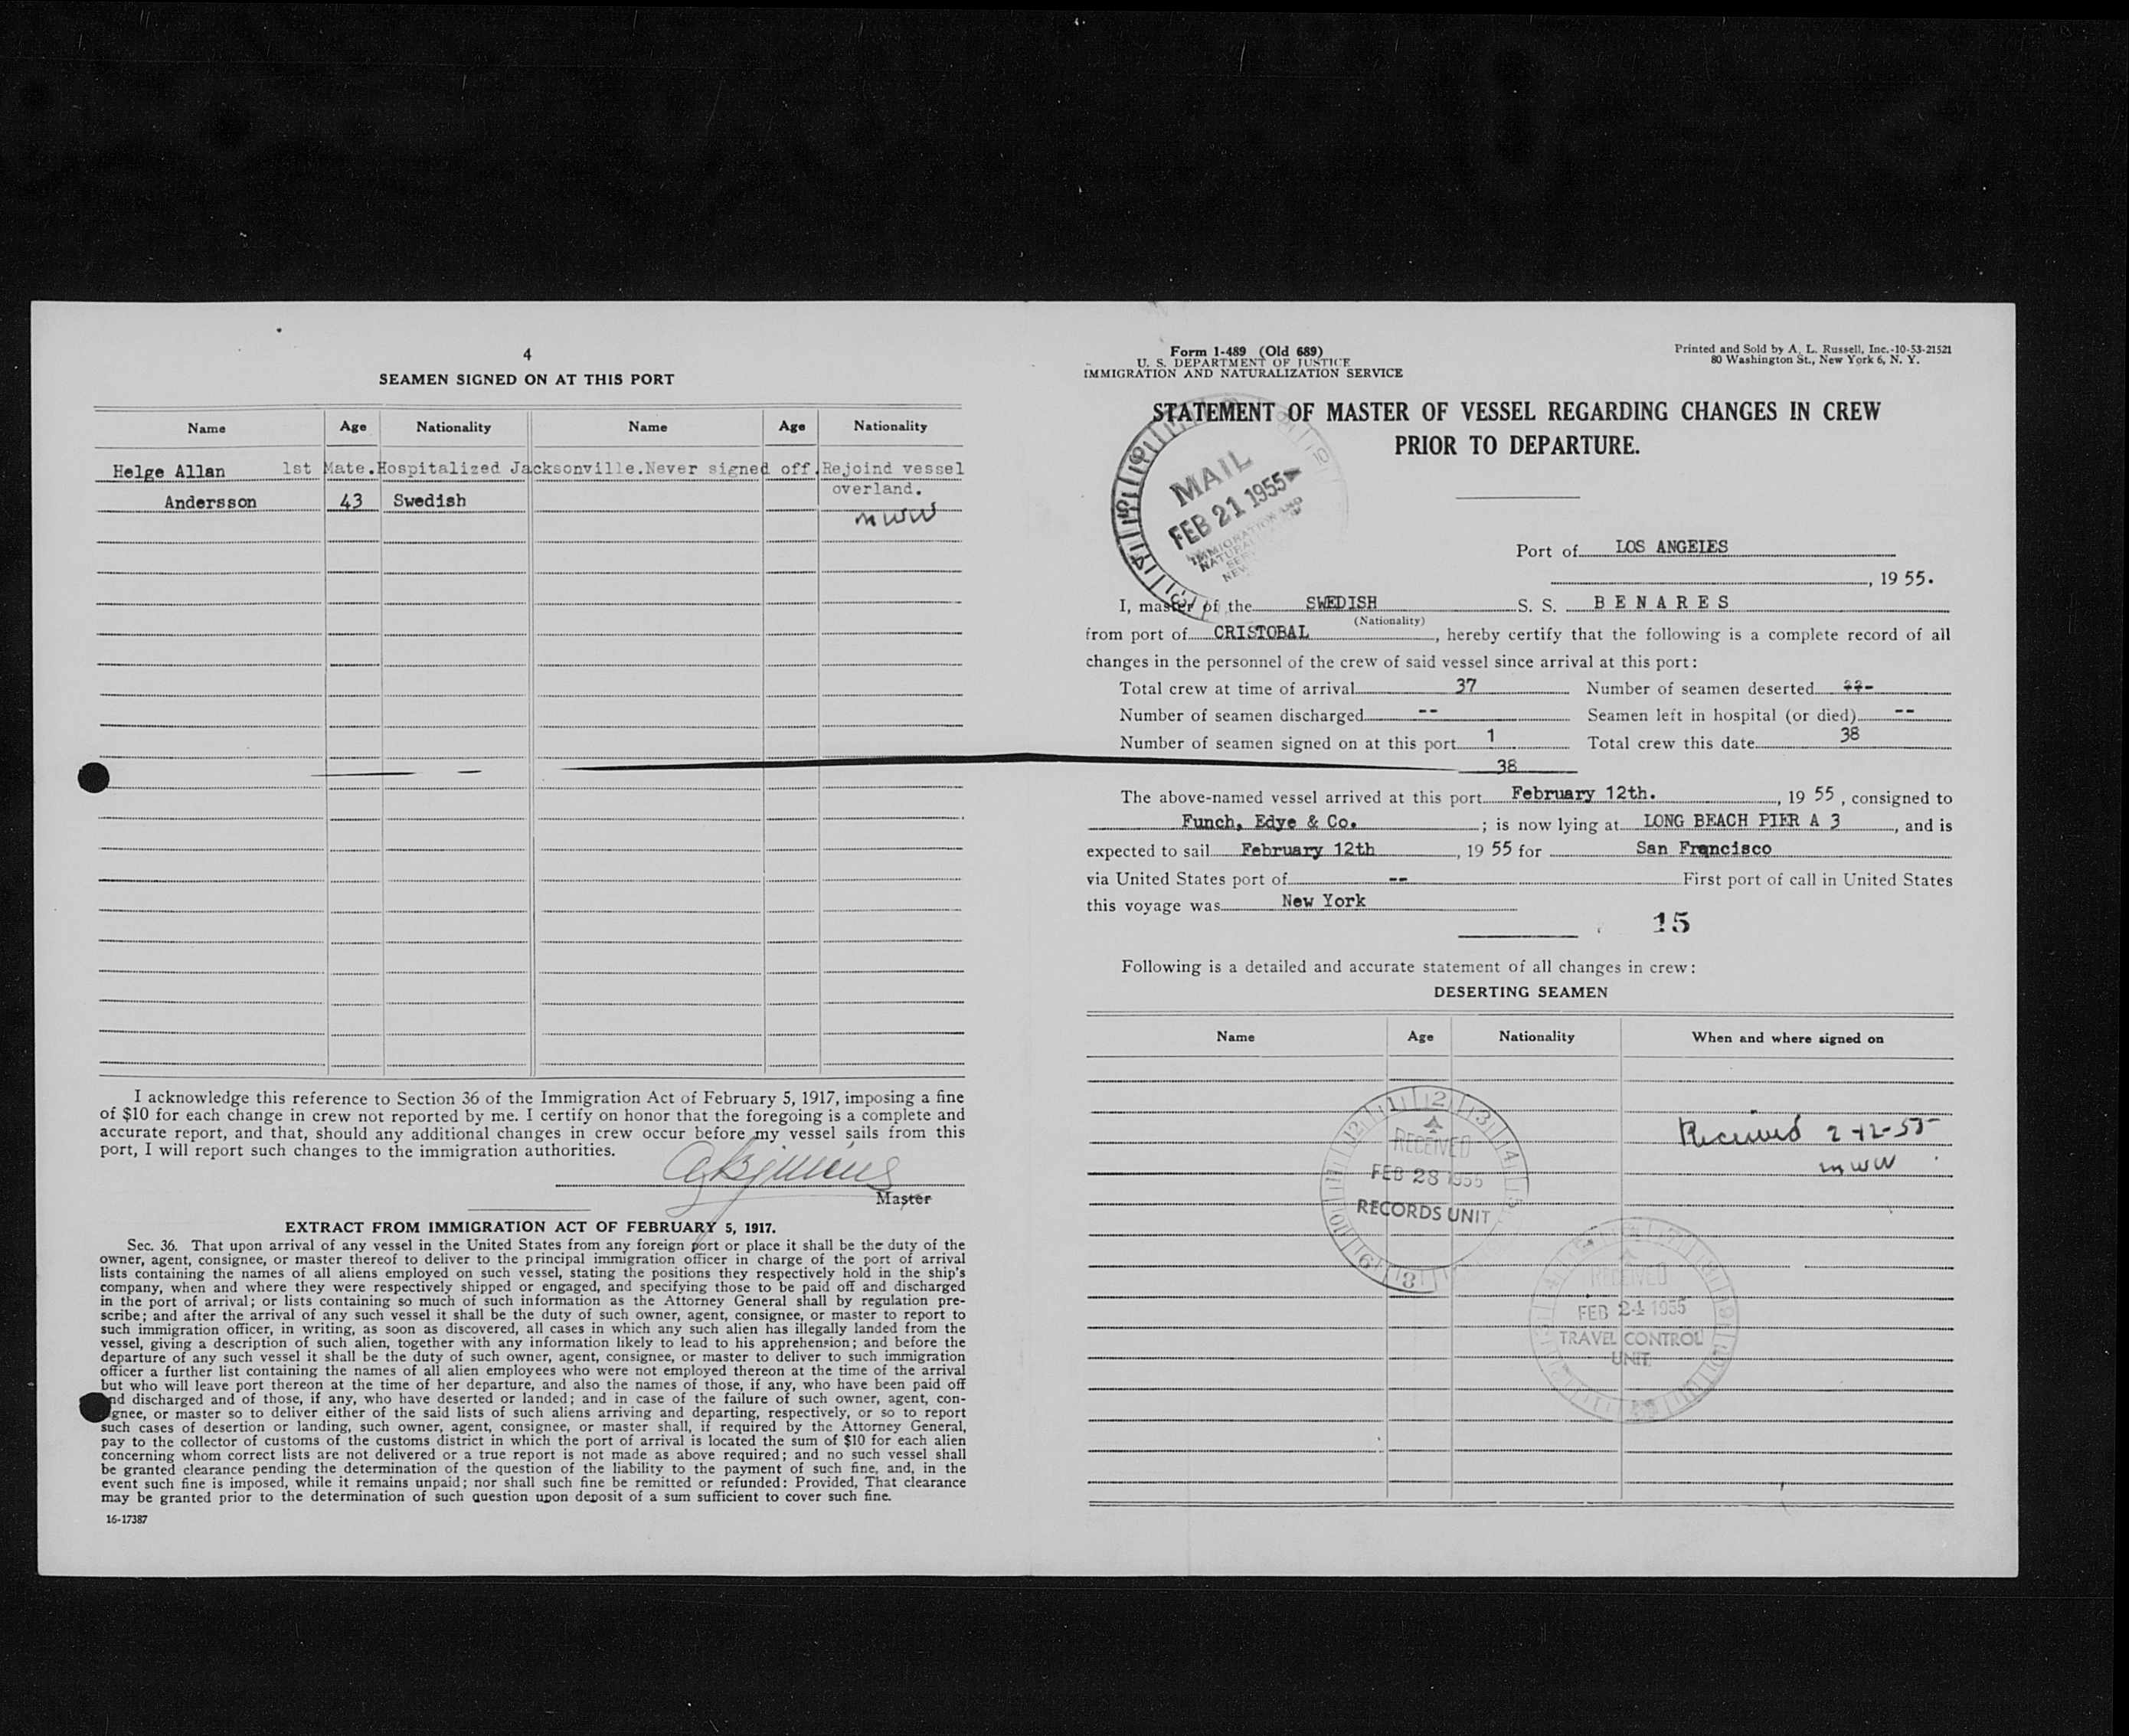 4
SEAMEN SIGNED ON AT THIS PORT
Name Age Nationality Name Age Nationality
Helge Allan 1st Mate.Hospitalized Jacksonville.Never signed off.Rejoind vessel
overland.
Andersson 43 Swedish
mww
I acknowledge this reference to Section 36 of the Immigration Act of February 5, 1917, imposing a fine
of $10 for each change in crew not reported by me. I certify on honor that the foregoing is a complete and
accurate report, and that, should any additional changes in crew occur before my vessel sails from this
port, I will report such changes to the immigration authorities.
Master
EXTRACT FROM IMMIGRATION ACT OF FEBRUARY 5, 1917.
Sec. 36. That upon arrival of any vessel in the United States from any foreign port or place it shall be the duty of the
owner, agent, consignee, or master thereof to deliver to the principal immigration officer in charge of the port of arrival
lists containing the names of all aliens employed on such vessel, stating the positions they respectively hold in the ship's
company, when and where they were respectively shipped or engaged, and specifying those to be paid off and discharged
in the port of arrival; or lists containing so much of such information as the Attorney General shall by regulation pre-
scribe; and after the arrival of any such vessel it shall be the duty of such owner, agent, consignee, or master to report to
such immigration officer, in writing, as soon as discovered, all cases in which any such alien has illegally landed from the
vessel, giving a description of such alien, together with any information likely to lead to his apprehension; and before the
departure of any such vessel it shall be the duty of such owner, agent, consignee, or master to deliver to such immigration
officer a further list containing the names of all alien employees who were not employed thereon at the time of the arrival
but who will leave port thereon at the time of her departure, and also the names of those, if any, who have been paid off
nd discharged and of those, if any, who have deserted or landed; and in case of the failure of such owner, agent, con-
gnee, or master so to deliver either of the said lists of such aliens arriving and departing, respectively, or so to report
such cases of desertion or landing, such owner, agent, consignee, or master shall, if required by the Attorney General,
pay to the collector of customs of the customs district in which the port of arrival is located the sum of $10 for each alien
concerning whom correct lists are not delivered or a true report is not made as above required; and no such vessel shall
be granted clearance pending the determination of the question of the liability to the payment of such fine, and, in the
event such fine is imposed, while it remains unpaid; nor shall such fine be remitted or refunded: Provided, That clearance
may be granted prior to the determination of such question upon deposit of a sum sufficient to cover such fine.
16-17387
Form 1-489 (Old 689)
U. S. DEPARTMENT OF JUSTICE
IMMIGRATION AND NATURALIZATION SERVICE
Printed and Sold by A. L. Russell, Inc.-10-53-21521
80 Washington St., New York 6, N. Y.
STATEMENT OF MASTER OF VESSEL REGARDING CHANGES IN CREW
PRIOR TO DEPARTURE.
MAIL
FEB 21 1955
IMMIGRATION AND
Port of LOS ANGELES
, 19 55.
I, master of the SWEDISH S. S. BENARES
(Nationality)
from port of CRISTOBAL, hereby certify that the following is a complete record of all
changes in the personnel of the crew of said vessel since arrival at this port:
Total crew at time of arrival 37 Number of seamen deserted
Number of seamen discharged -- Seamen left in hospital (or died) --
Number of seamen signed on at this port 1 Total crew this date 38
38
The above-named vessel arrived at this port February 12th., 19 55, consigned to
Funch, Edye & Co.; is now lying at LONG BEACH PIER A 3, and is
expected to sail February 12th, 19 55 for San Francisco
via United States port of -- First port of call in United States
this voyage was New York
15
Following is a detailed and accurate statement of all changes in crew:
DESERTING SEAMEN
Name Age Nationality When and where signed on
Received 2-12-55
mww
RECEIVED
FEB 28 1955
RECORDS UNIT
RECEIVED
FEB 24 1955
TRAVEL CONTROL
UNIT